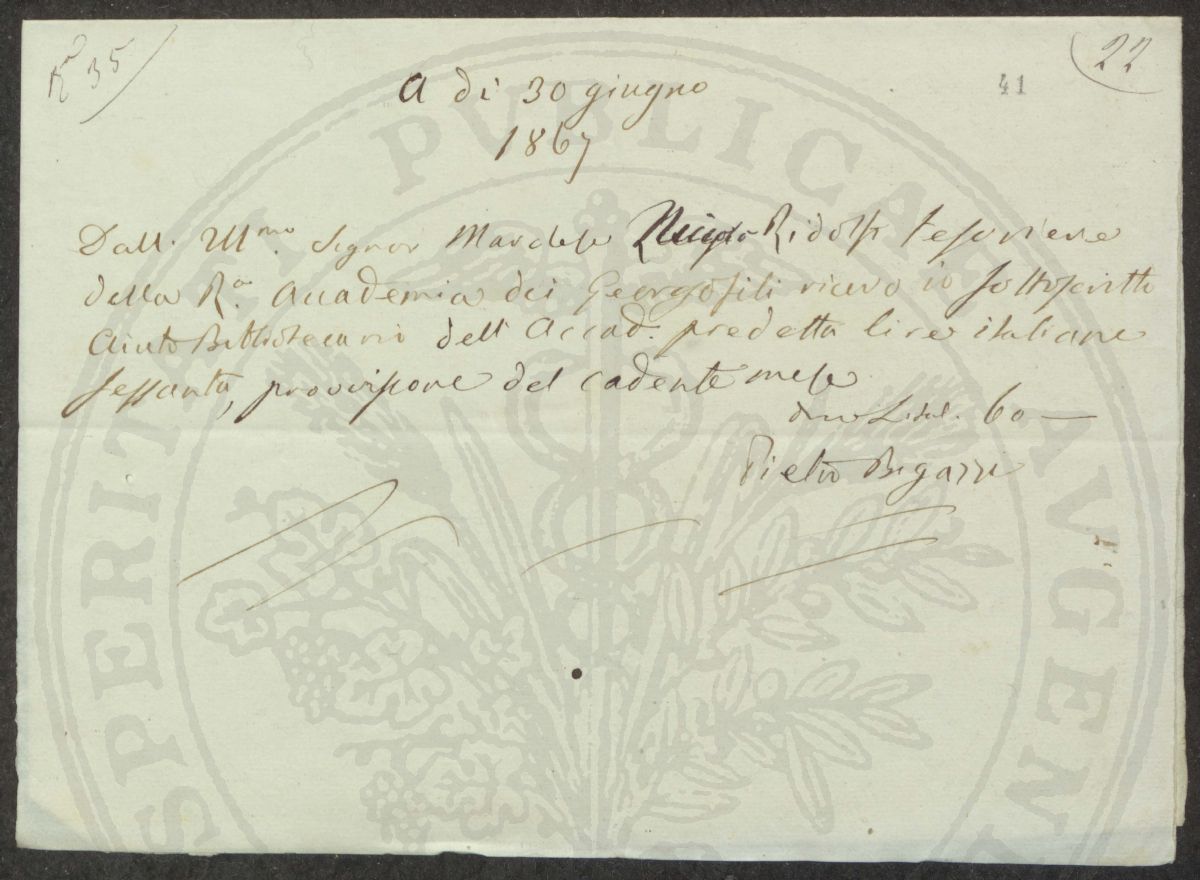 R.ª 35
22
41
A dì 30 giugno
1867
Dall' Ill.mo Signor Marchese Ridolfi Tesoriere
della R.a Accademia dei Georgofili ricevo io sottoscritto
Aiuto Bibliotecario dell'Accad. predetta lire italiane
sessanta, provvisione del cadente mese
60 —
Pietro Bigazzi
PROSPERITATI PUBLICAE AUGENDAE